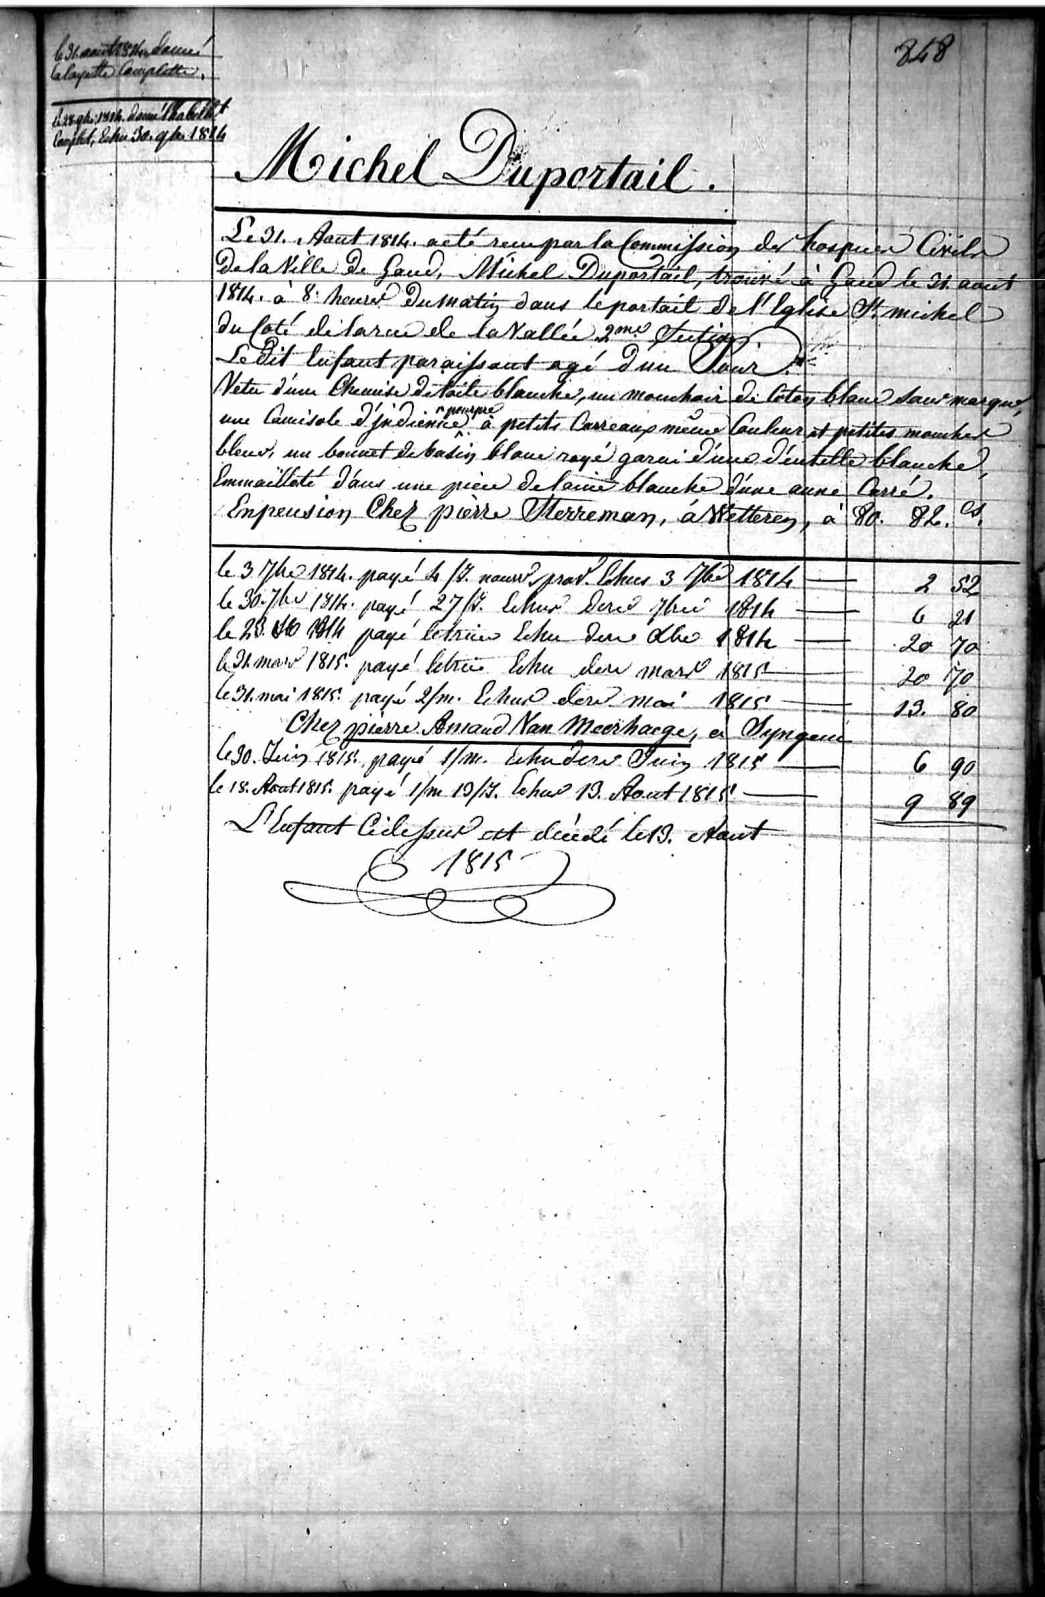 848
le 31. aout 1814 donné
la layette Complette.
le 28 9bre 1814. donné l'habillet
Complet, Echu 30. 9bre 1814
Michel Duportail.
Le 31. Aout 1814. a eté recu par la Commission des hospices Civils
De la Ville de Gand, Michel Duportail, trouvé à Gand le 31. aout
1814. à 8. heures Du matin dans le portail de l'Eglise St. michel
du Coté de la rue de la Vallée 2me Section
Le Dit Enfant paraissant agé d'un Jour.
Vetu d'une Chemise de toile blanche, un mouchoir de Coton blanc sans marque,
une Camisole d'indienne pourpre à petits Carreaux même Couleur et petites mouches
bleus, un bonnet de basin blanc rayé garni d'une dentelle blanche,
Emmailloté dans une piece de laine blanche d'une aune Carré.
En pension Chez pierre Sterreman, à Wetteren, à 80. 82. Cs.
le 3 7bre 1814. payé 4/J. nourr. prov. Echus 3 7bre 1814 — 2 52
le 30. 7bre 1814. payé 27/J. Echus dere 7bre 1814 — 6 21
le 23. Xb 1814 payé letrie Echu dere Xbre 1814 — 20 70
le 31. mars 1815. payé letrie Echu dere mars 1815 — 20 70
le 31. mai 1815. payé 2/m. Echus dere mai 1815 — 13. 80
Chez pierre Amand Van Meerhaege, à Syngem
le 30. Juin 1815. payé 1/m. Echu dere Juin 1815 — 6 90
le 18. Aout 1815. payé 1/m 13/J. Echus 13. Aout 1815 — 9 89
L'Enfant Cidessus est décédé le 13. Aout
1815